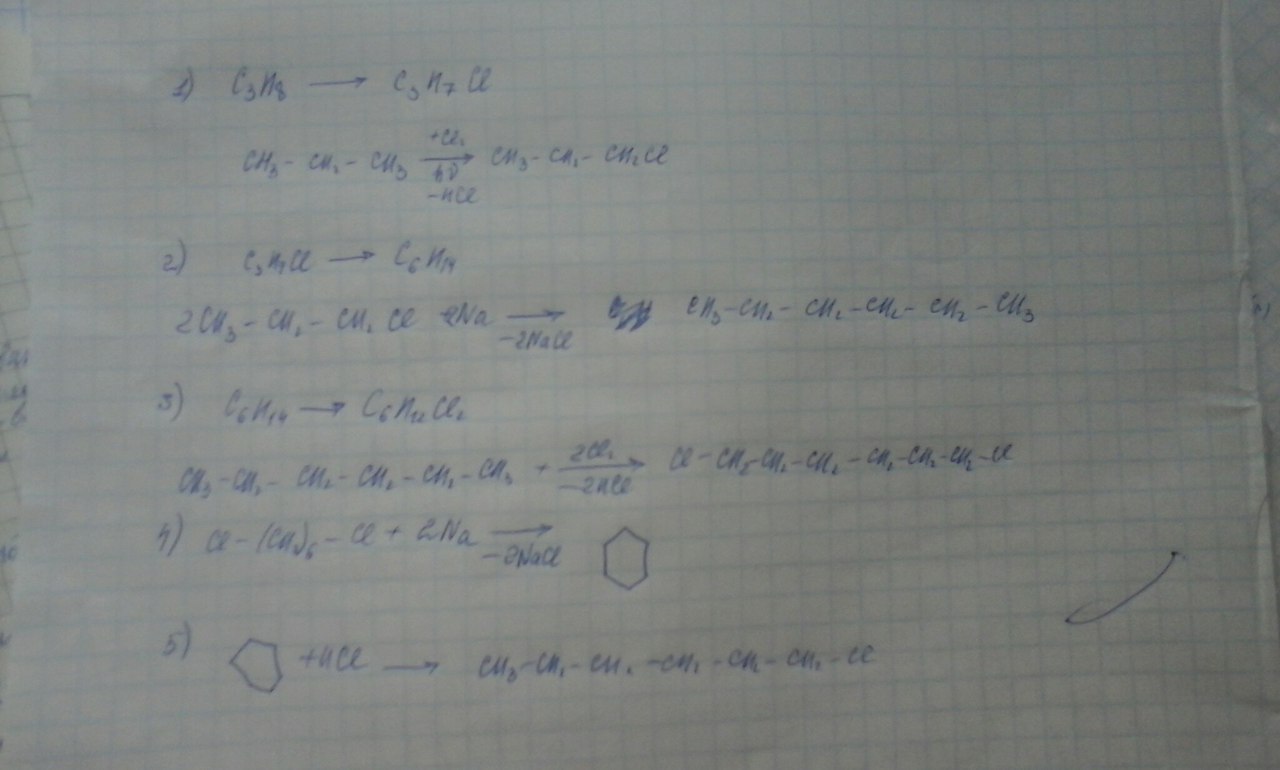 1) C₃H₈ ⟶ C₃H₇Cl
CH₃ - CH₂ - CH₃ +Cl₂ ⟶ hν -HCl CH₃ - CH₂ - CH₂Cl
2) C₃H₇Cl ⟶ C₆H₁₄
2CH₃ - CH₂ - CH₂Cl +2Na ⟶ -2NaCl CH₃-CH₂-CH₂-CH₂-CH₂-CH₃
3) C₆H₁₄ ⟶ C₆H₁₂Cl₂
CH₃-CH₂-CH₂-CH₂-CH₂-CH₃ + 2Cl₂ ⟶ -2HCl Cl-CH₂-CH₂-CH₂-CH₂-CH₂-CH₂-Cl
4) Cl-(CH₂)₆-Cl + 2Na ⟶ -2NaCl
5) +HCl ⟶ CH₃-CH₂-CH₂-CH₂-CH₂-CH₂-Cl